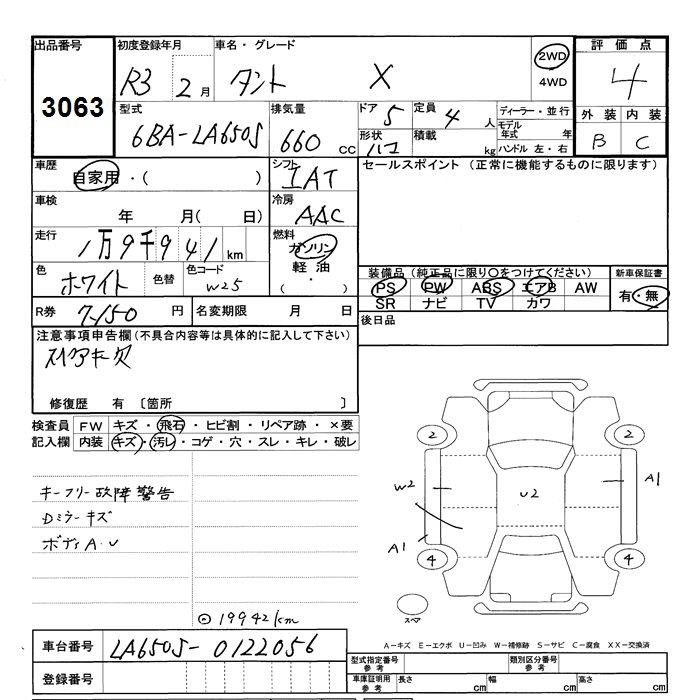 出品番号 初度登録年月 車名・グレード 2WD 評価点
3063 R3 2月 タント X 4WD 4
型式 排気量 ドア 5 定員 4人 ディーラー・並行 外装 内装
6BA-LA650S 660cc 形状 ハコ 積載 kg モデル年式 年 B C
ハンドル 左・右
車歴 シフト セールスポイント (正常に機能するものに限ります)
自家用・( ) IAT
車検 冷房
年 月( 日) AAC
走行 1万9千941km 燃料
ガソリン
軽油
( ・ )
色 ホワイト 色替 色コード W25 装備品(純正品に限り○をつけてください) 新車保証書
PS PW ABS エアB AW 有・無
SR ナビ TV カワ
R券 7,150円 名変期限 月 日 後日品
注意事項申告欄(不具合内容等は具体的に記入して下さい)
スペアキー欠
修復歴 有 〔箇所 〕
検査員 FW キズ・飛石・ヒビ割・リペア跡・×要
記入欄 内装 キズ・汚レ・コゲ・穴・スレ・キレ・破レ
2 2
A1
W2 U2
キーフリー故障警告
Dミラーキズ
ボディA.U
A1
4 4
スペア
◎19942km
A−キズ E−エクボ U−凹み W−補修跡 S−サビ C−腐食 XX−交換済
車台番号 LA650S-0122056
型式指定番号 参考 類別区分番号 参考
登録番号
車庫証明用 参考 長さ cm 幅 cm 高さ cm